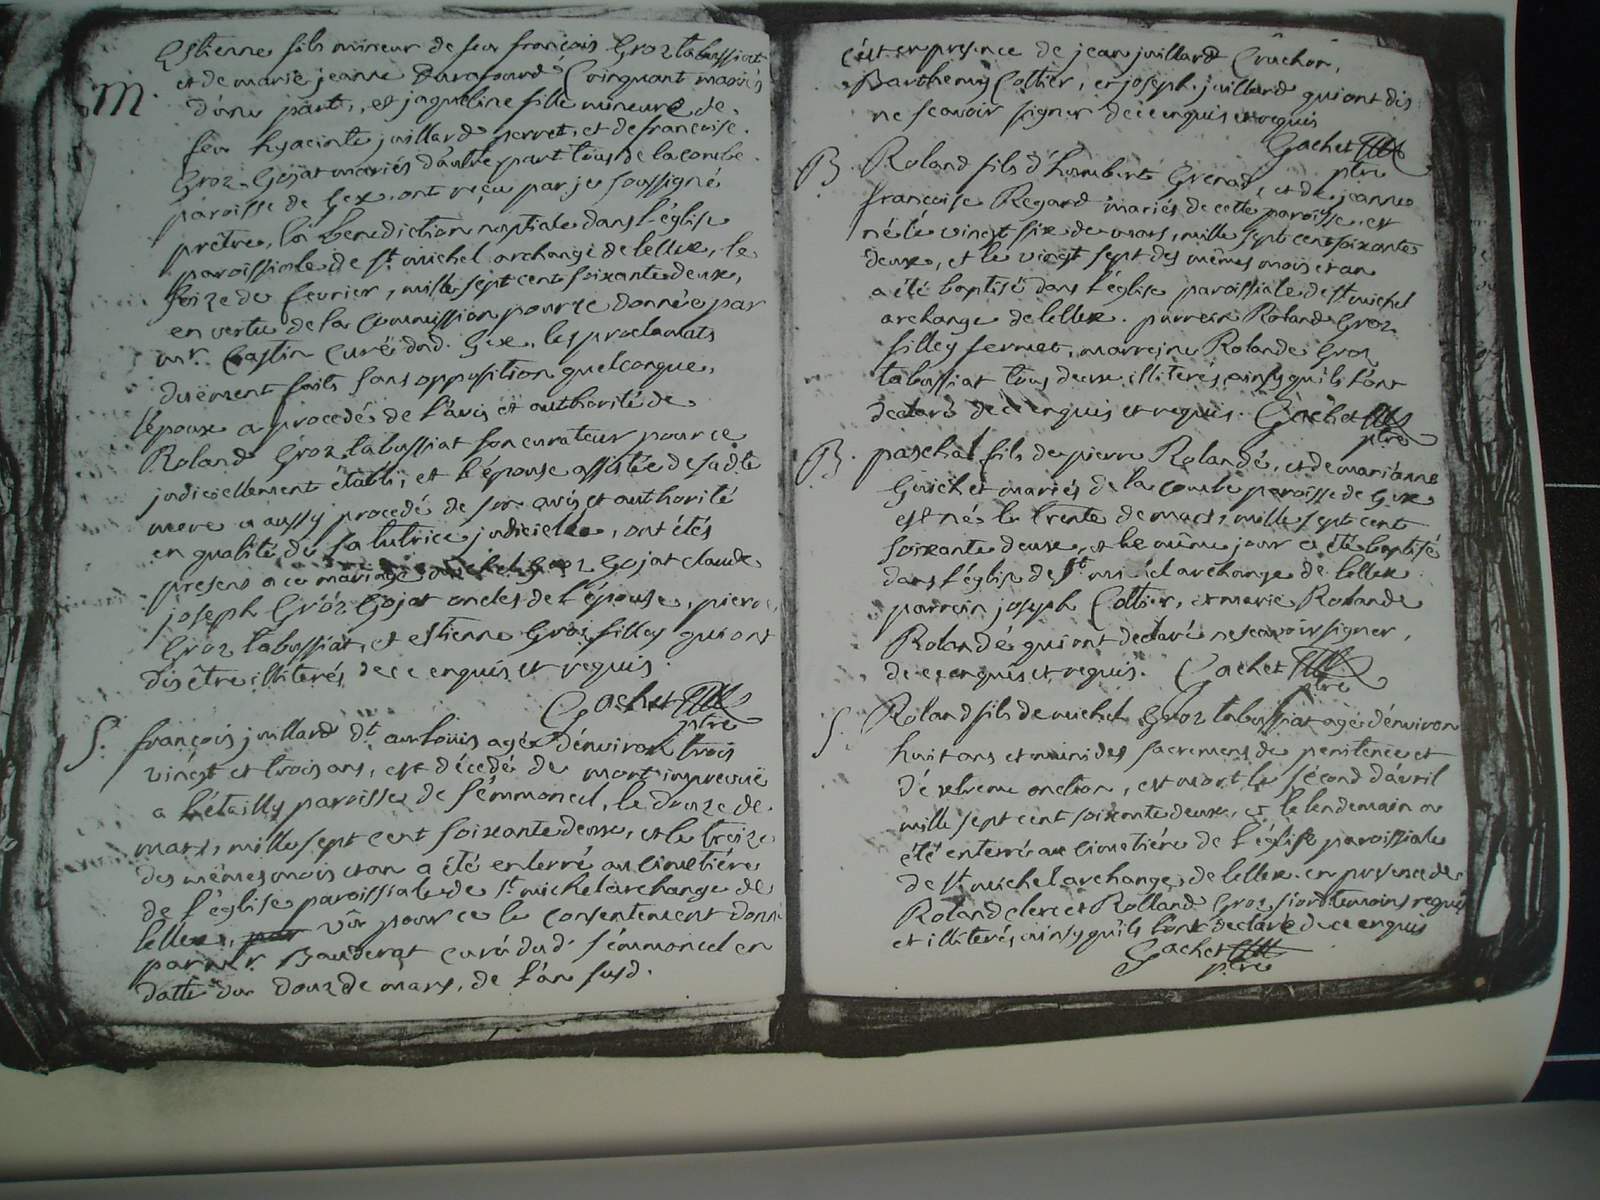 Estienne fils mineur de feu françois Groz tabussiat
et de marie jeanne mariés
M. d'une part, et jaqueline fille mineure de
feu hyacinte juillard perret, et de françoise
Groz Gojat mariés d'autre part tous de la combe
paroisse de Gex ont reçu par je soussigné
prêtre, la benediction nuptiale dans l'église
paroissiale de st. michel archange de lellex, le
seize de fevrier, mille sept cent soixante deux,
en vertu de la commission pour ce donnée par
mr. Castin curé dud. Gex, les proclamats
duëment faits sans opposition quelconque,
l'époux a procedé de l'avis et authorité de
Roland Groz tabussiat son curateur pour ce
judiciellement établi, et l'épouse assistée de sadte
mere a aussy procedé de son avis et authorité
en qualité de sa tutrice judicielle, ont étés
presens a ce mariage michel Groz Gojat claude
joseph Gróz Gojat oncles de l'épouse, pierre
Groz tabussiat, et estienne Groz filley qui ont
dis être illiterés de ce enquis et requis.
Gachet ptre
S. françois juillard dt. aulouis agé d'énviron trois
vingt et trois ans, est décedé de mort imprevuë
a paroisse de sémmoncel, le douze de
mars, mille sept cent soixante deux, et le treize
des mêmes mois et an a été enterré au cimetiére
de l'église paroissiale de st. michel archange de
lellex, par vû pour ce le consentement donné
par mr. curé dud. sémmoncel en
datte du douz de mars, de l'an susd.
c'est en presence de jean juillard Cruchon,
Barthemy Coltier, et joseph juillard qui ont dis
ne scavoir signer de ce enquis et requis
Gachet ptre
B. Roland fils d'humbert Grenard, et de jeanne
françoise Regard mariés de cette paroisse, est
né le vingt six de mars, mille sept cent soixante
deux, et le vingt sept des mêmes mois et an
a été baptisé dans l'église paroissiale de st michel
archange de lellex. parrein Roland Groz
filley fermet, marreine Rolande Groz
tabussiat tous deux illiterés ainsy qu'ils l'ont
declaré de ce enquis et requis. Gachet ptre
B. paschal fils de pierre Rolandé, et de marianne
Guichet mariés de la combe paroisse de Gex
est né le trente de mars, mille sept cent
soixante deux, et le même jour a été baptisé
dans l'église de st. michel archange de lellex
parrain joseph Coltier, et marie Rolande
Rolandé qui ont declaré ne scavoir signer,
de ce enquis et requis. Gachet ptre
S. Roland fils de michel Groz tabussiat agé d'énviron
huit ans et muni des sacremens de penitence et
d'éxtreme onction, est mort le sécond d'avril
mille sept cent soixante deux, et le lendemain a
été enterré au cimetiére de l'église paroissiale
de st michel archange de lellex. en presence de
Roland clerc et Rolland Groz siord temoins requis
et illiterés ainsy qu'ils l'ont declaré de ce enquis
Gachet ptre